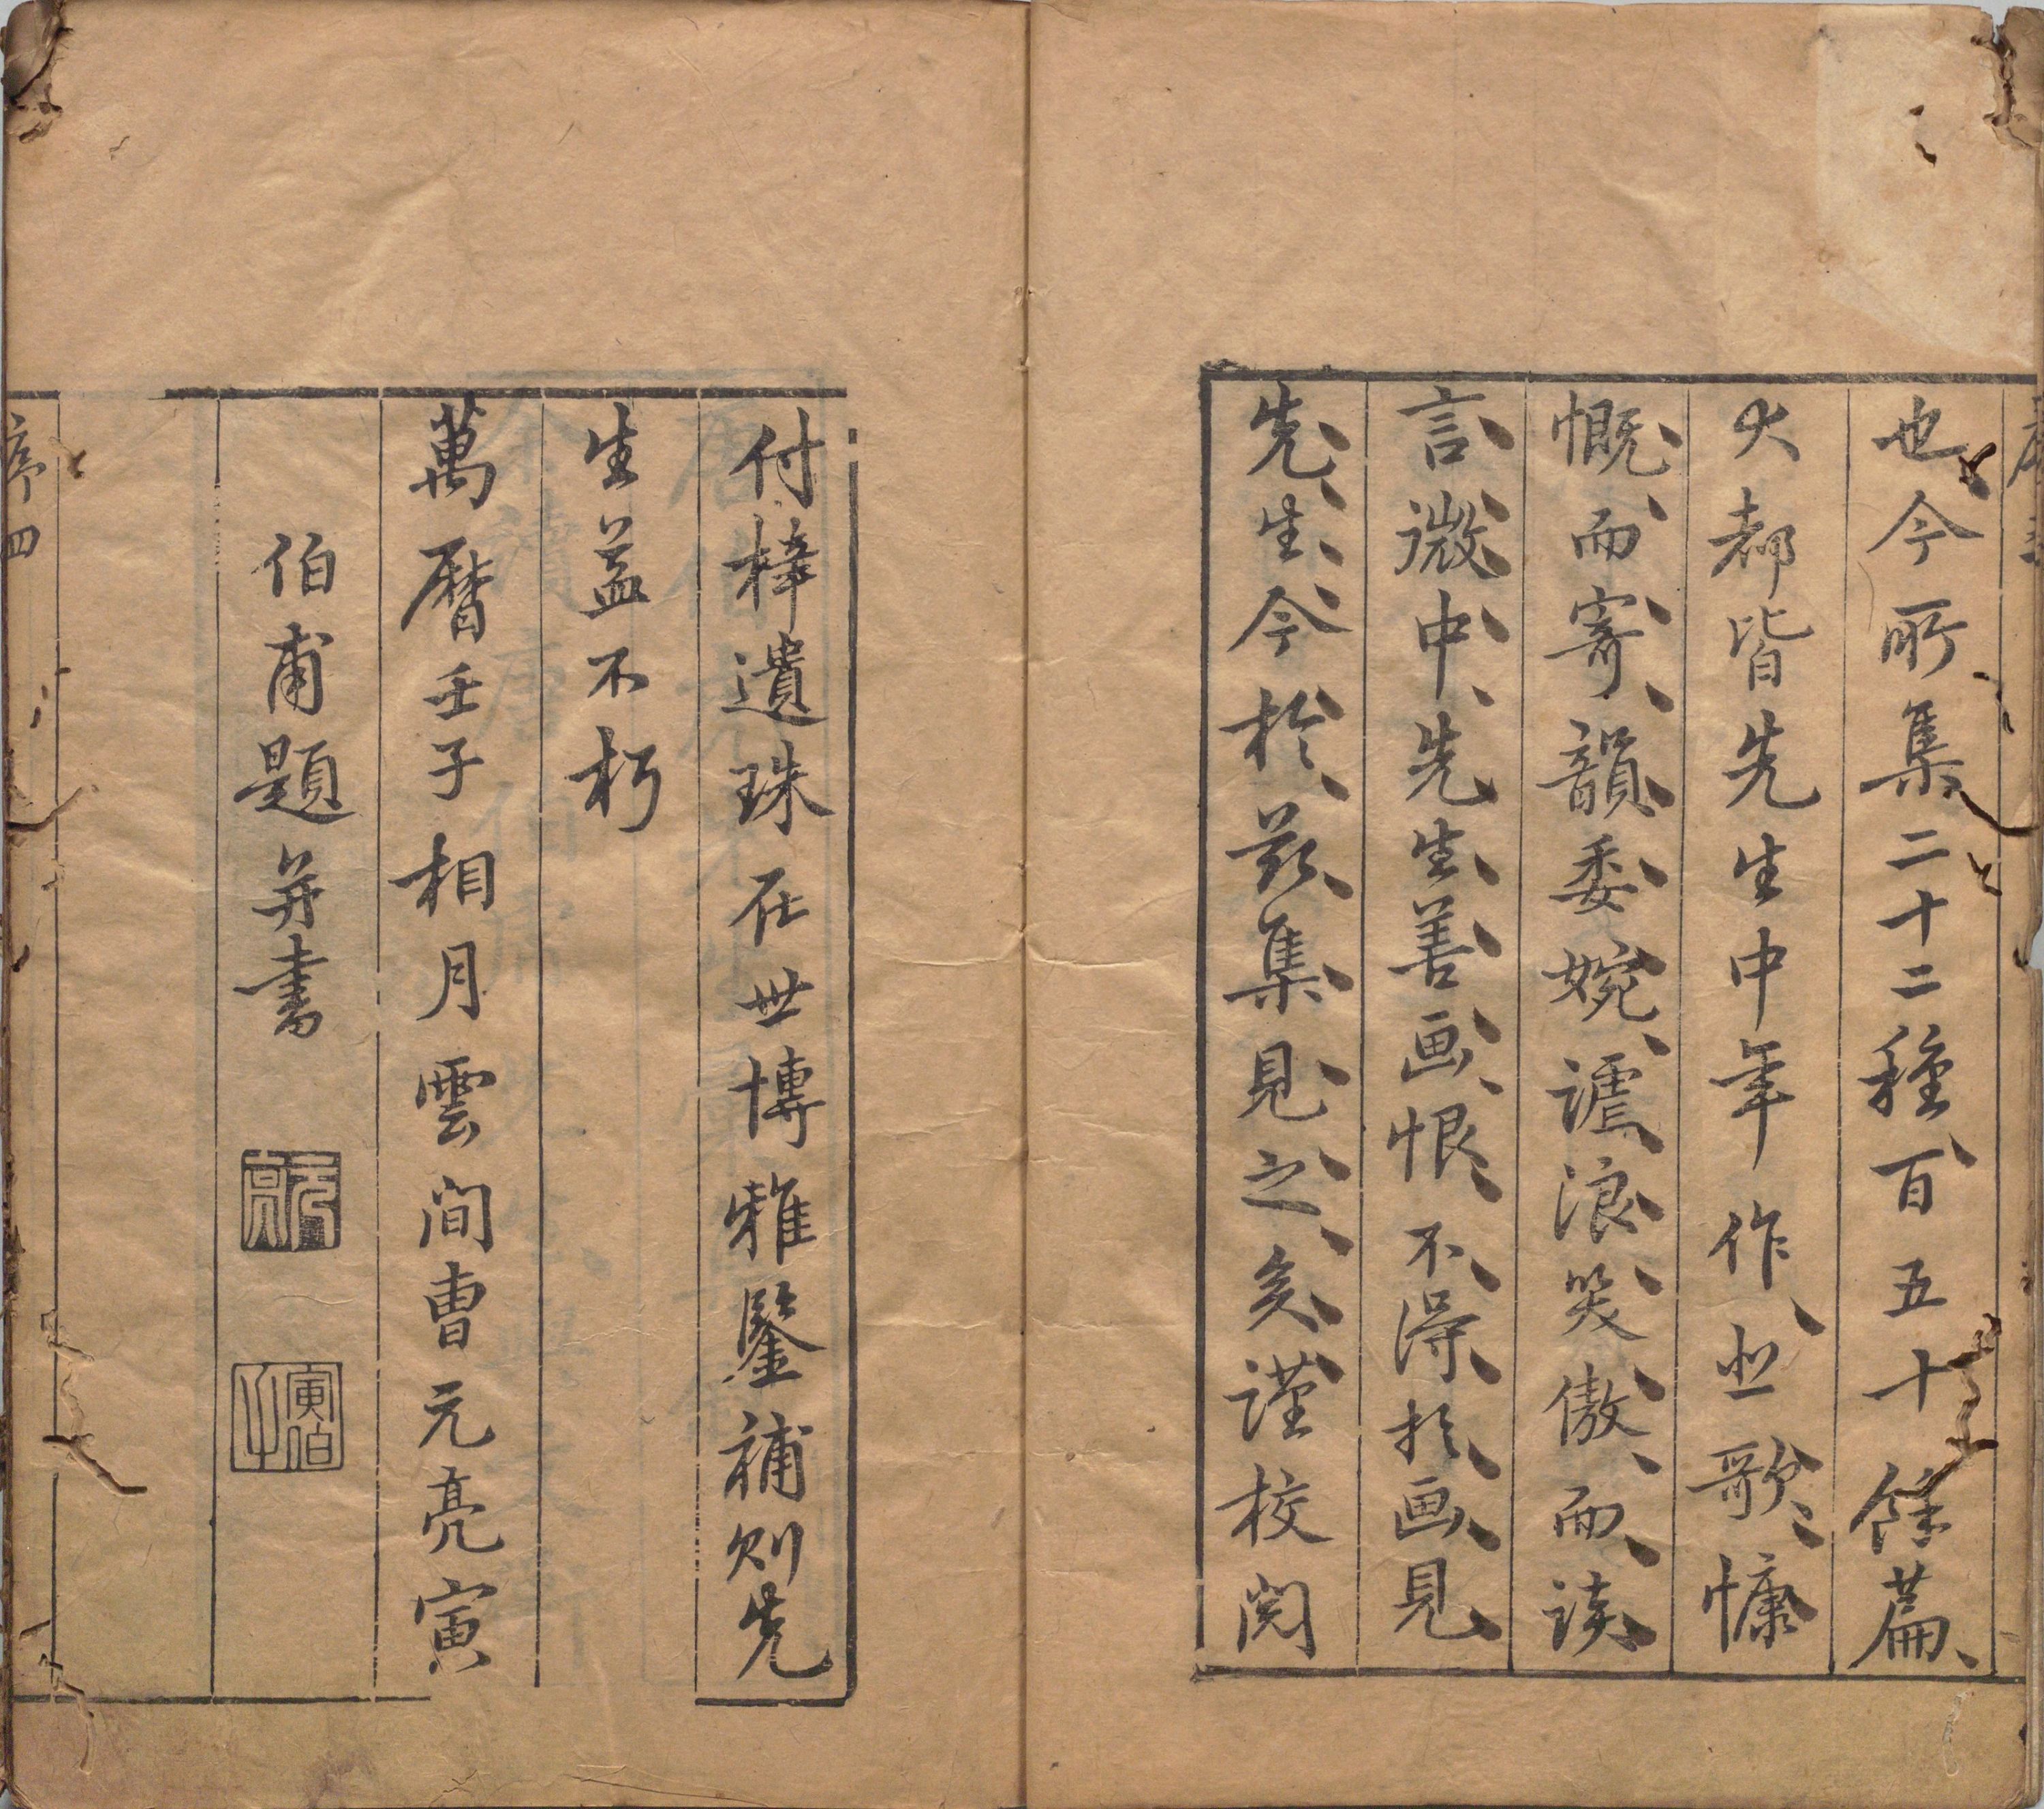 也今所集二十二種百五十餘篇
大都皆先生中年作悲歌慷
慨而寄韻委婉謔浪笑傲而談
言微中先生善画恨不得於画見
先生今於茲集見之矣謹校閱
付梓遺珠在世博雅鑒補則先
生益不朽
萬曆壬子相月雲間曹元亮寅
伯甫題并書
元亮
寅伯
序四